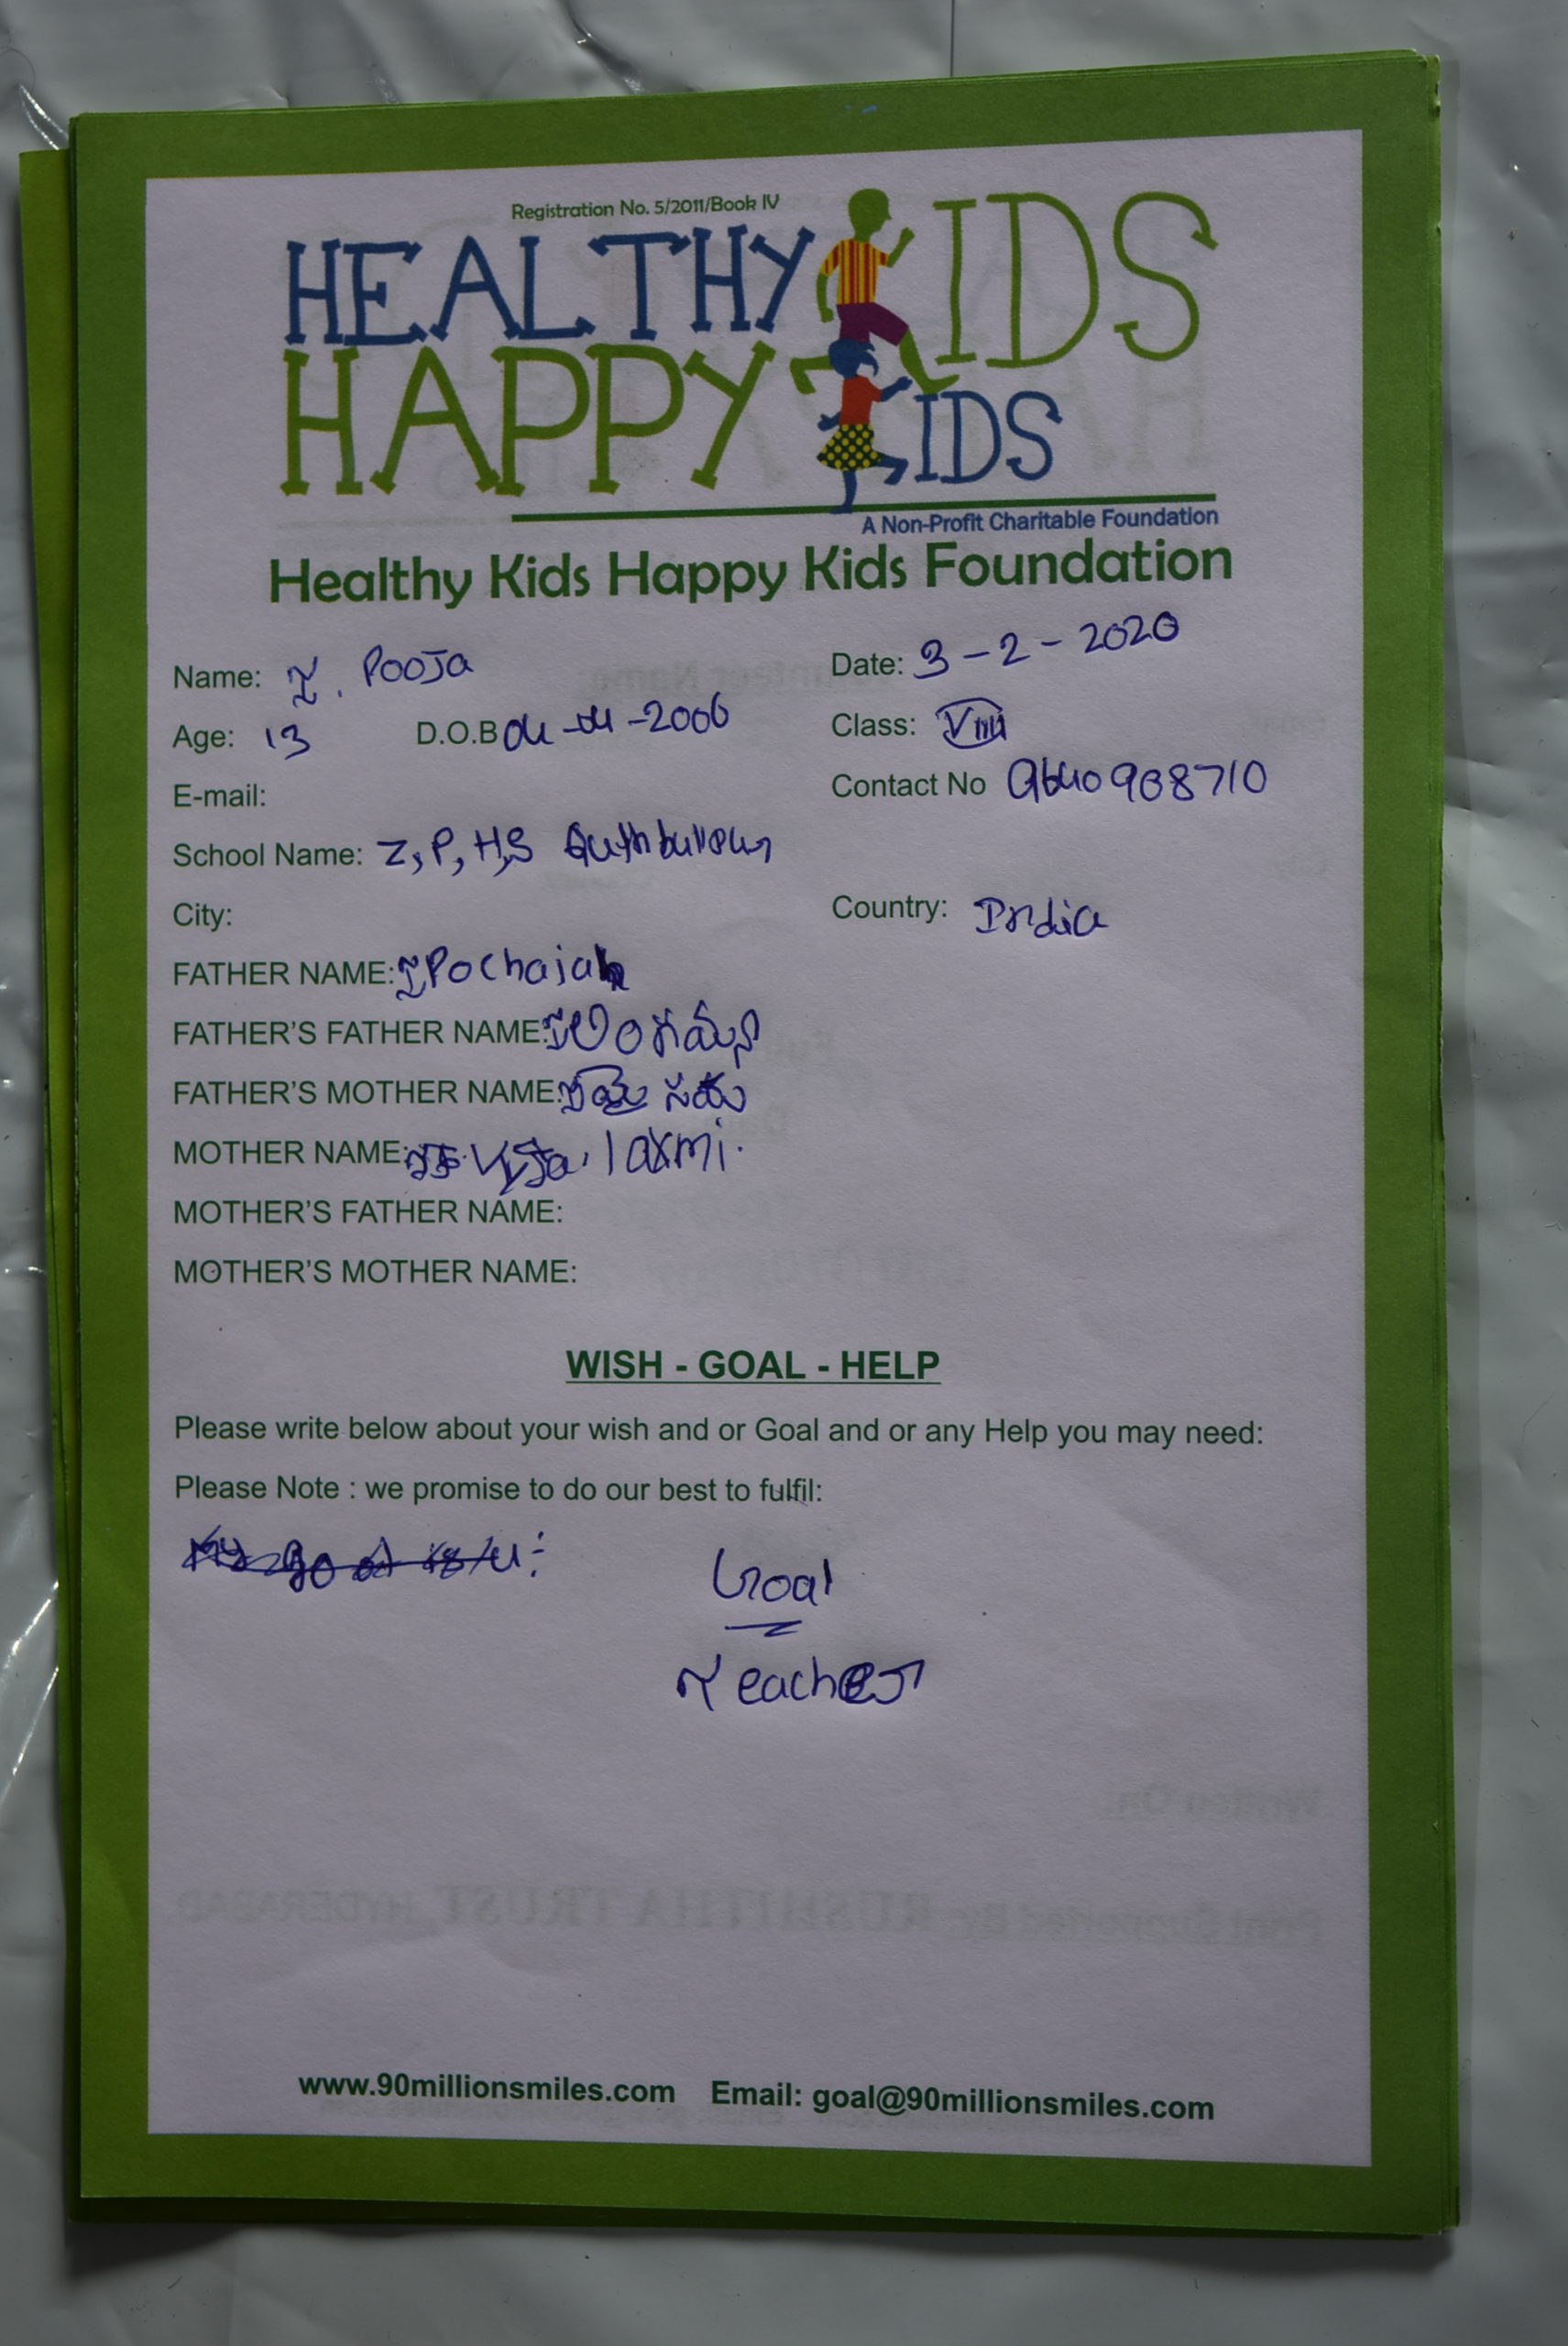 Registration No. 5/2011/Book IV
HEALTHY KIDS
HAPPY KIDS
A Non-Profit Charitable Foundation
Healthy Kids Happy Kids Foundation
Name: T. Pooja Date: 3-2-2020
Age: 13 D.O.B 04-04-2006 Class: VIII
E-mail: Contact No 9640908710
School Name: Z, P, H, S
City: Country: India
FATHER NAME: T Pochaiah
FATHER'S FATHER NAME:
FATHER'S MOTHER NAME:
MOTHER NAME: laxmi.
MOTHER'S FATHER NAME:
MOTHER'S MOTHER NAME:
WISH - GOAL - HELP
Please write below about your wish and or Goal and or any Help you may need:
Please Note : we promise to do our best to fulfil:
Goal
Teacher
www.90millionsmiles.com Email: goal@90millionsmiles.com